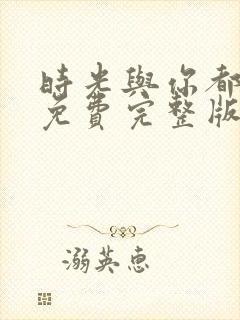 時光與你都
免費完整版
溺英惠